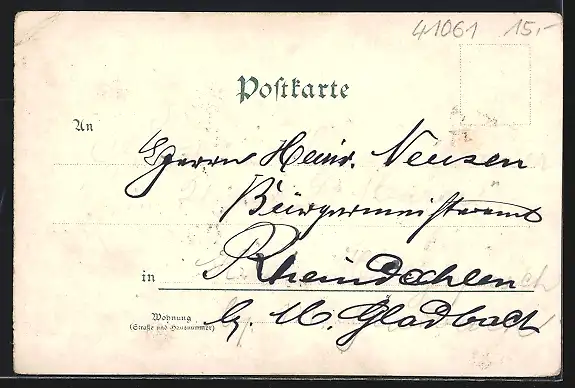 41061 15.-
Postkarte
An
Herrn Heinr. Neusen
Bürgermeisteramt
in Rheindahlen
Wohnung
(Straße und Hausnummer)
b. M. Gladbach